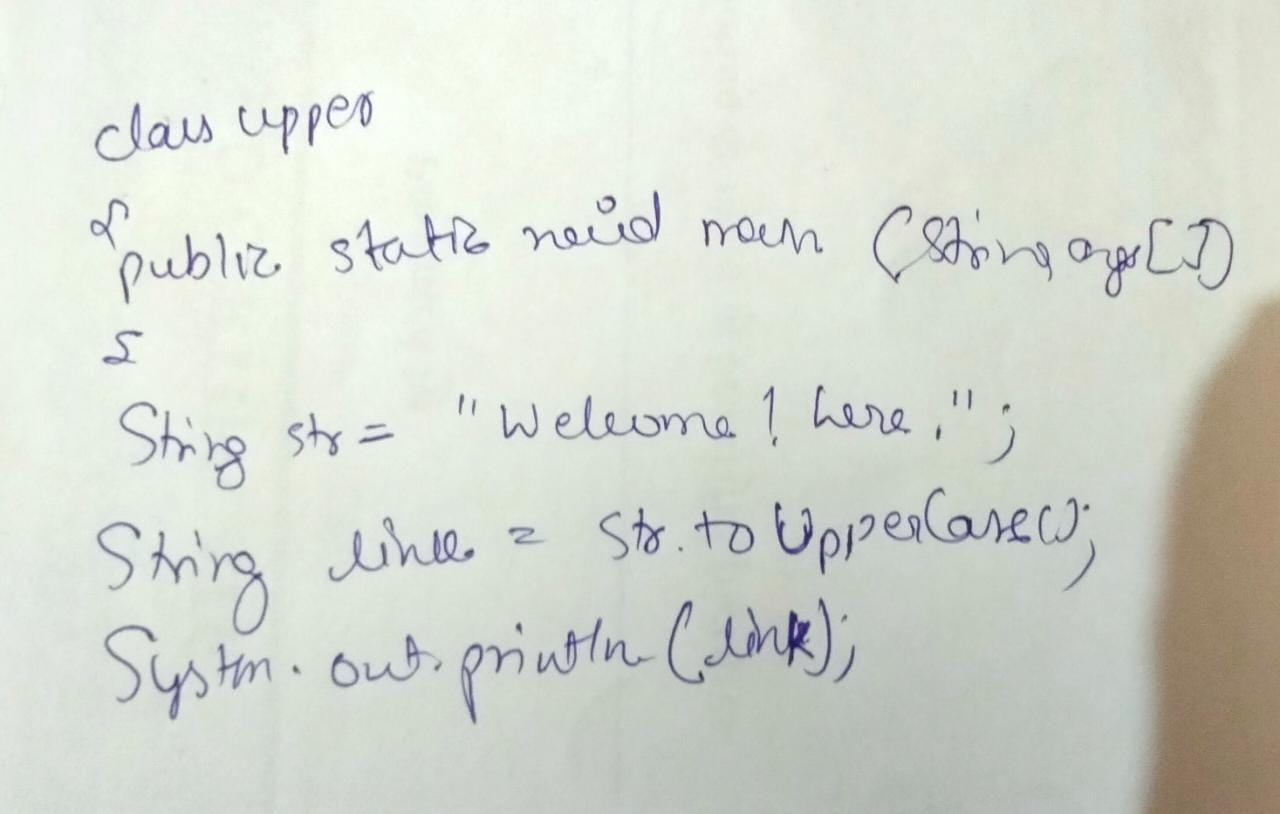 class upper
{
public static void main (String args[])
{
String str = "Welcome ! here.";
String link = str.toUpperCase();
System.out.println(link);